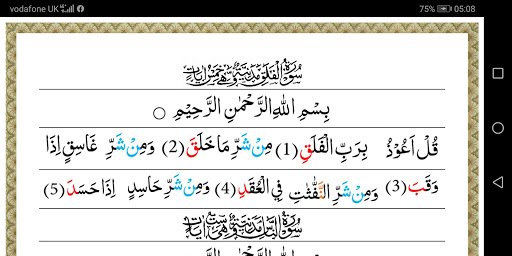 vodafone UK 75% 05:08
سُوْرَةُ الْفَلَقِ مَدَنِيَّةٌ وَّهِيَ خَمْسُ اٰيَاتٍ
بِسْمِ اللهِ الرَّحْمٰنِ الرَّحِيْمِ
قُلْ اَعُوْذُ بِرَبِّ الْفَلَقِ (1) مِنْ شَرِّ مَا خَلَقَ (2) وَمِنْ شَرِّ غَاسِقٍ اِذَا
وَقَبَ (3) وَمِنْ شَرِّ النَّفّٰثٰتِ فِي الْعُقَدِ (4) وَمِنْ شَرِّ حَاسِدٍ اِذَا حَسَدَ (5)
سُوْرَةُ النَّاسِ مَدَنِيَّةٌ وَّهِيَ سِتُّ اٰيَاتٍ